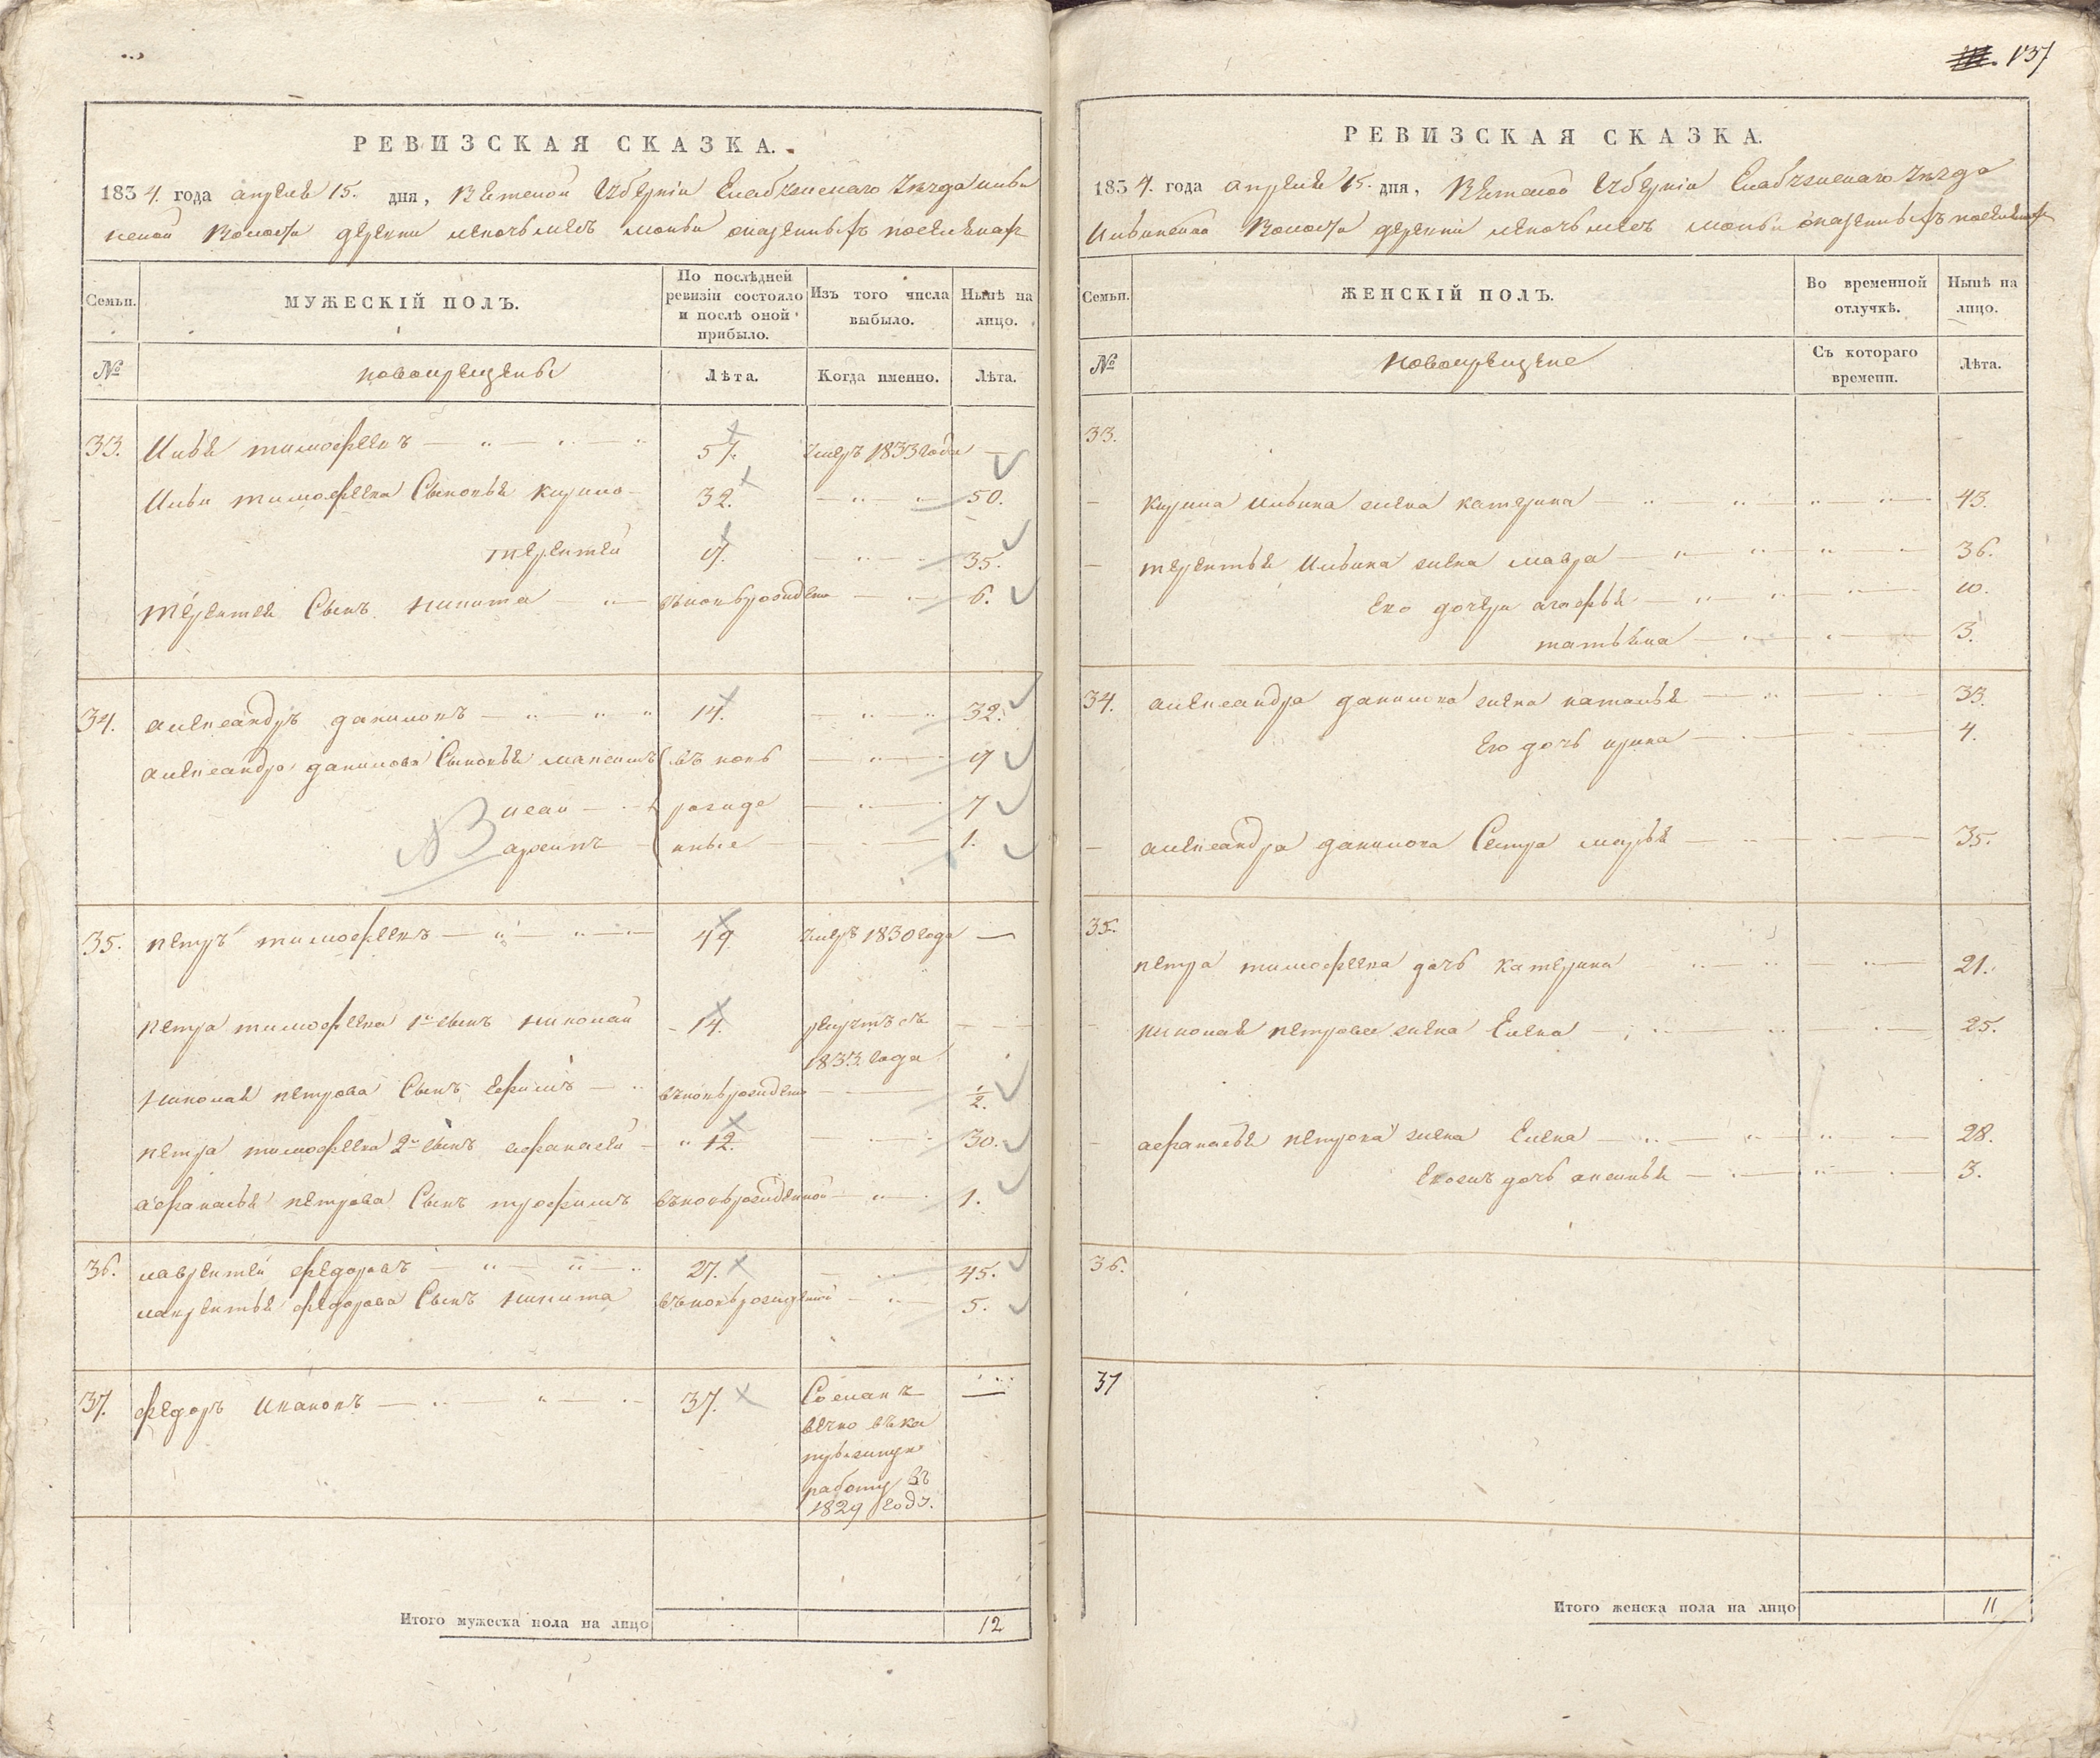 137
РЕВИЗСКАЯ СКАЗКА.
1834. года апреля 15. дня, Вятской Губерніи Елабужскаго Уезда Ильи
нской Волости деревни казенныхъ поселянахъ
Семьи. МУЖЕСКІЙ ПОЛЪ. По послѣдней ревизіи состояло и послѣ оной прибыло. Изъ того числа выбыло. Нынѣ на лицо.
№ новокрещены Лѣта. Когда именно. Лѣта.
33. Илья тимофеевъ 57. умеръ 1833 года
Ильи тимофеева Сыновья кирило 32. 50.
терентей 17. 35.
терентея Сынъ никита вновь рожденъ 6.
34. александръ даниловъ 14. 32.
александра данилова Сыновья максимъ въ новь 9
иванъ рожде 7
архипъ нные 1.
35. петръ тимофеевъ 49. умеръ 1830 года
петра тимофеева 1й сынъ николай 14. рекрутъ съ
1833 года
николая петрова Сынъ ефимъ вновь рожденъ 1/2.
петра тимофеева 2й сынъ афанасей 12. 30.
афанасья петрова Сынъ трофимъ вновь рожденной 1.
36. лаврентей федоровъ 27. 45.
лаврентья федорова Сынъ никита вновь рожденный 5.
37. федоръ Ивановъ 37. Сосланъ
вечно въ ка
торжную
работу въ
1829 году.
Итого мужеска пола на лицо 12
РЕВИЗСКАЯ СКАЗКА.
1834. года апреля 15. дня, Вятской Губерніи Елабужскаго Уезда
Ильинской Волости деревни казенныхъ поселянахъ
Семьи. ЖЕНСКІЙ ПОЛЪ. Во временной отлучкѣ. Нынѣ на лицо.
№ Новокрещене Съ котораго времени. Лѣта.
33.
кирила Ильина жена катерина 45.
терентья Ильина жена мавра 36.
Его дочери агафья 10.
татьяна 3.
34. александра данилова жена наталья 33.
Его дочь ирина 4.
александра данилова Сестра марья 35.
35.
петра тимофеева дочь катерина 21.
николая петрова жена Елена 25.
афанасья петрова жена Елена 28.
Евоенъ дочь аксинья 3.
36.
37
Итого женска пола на лицо 11